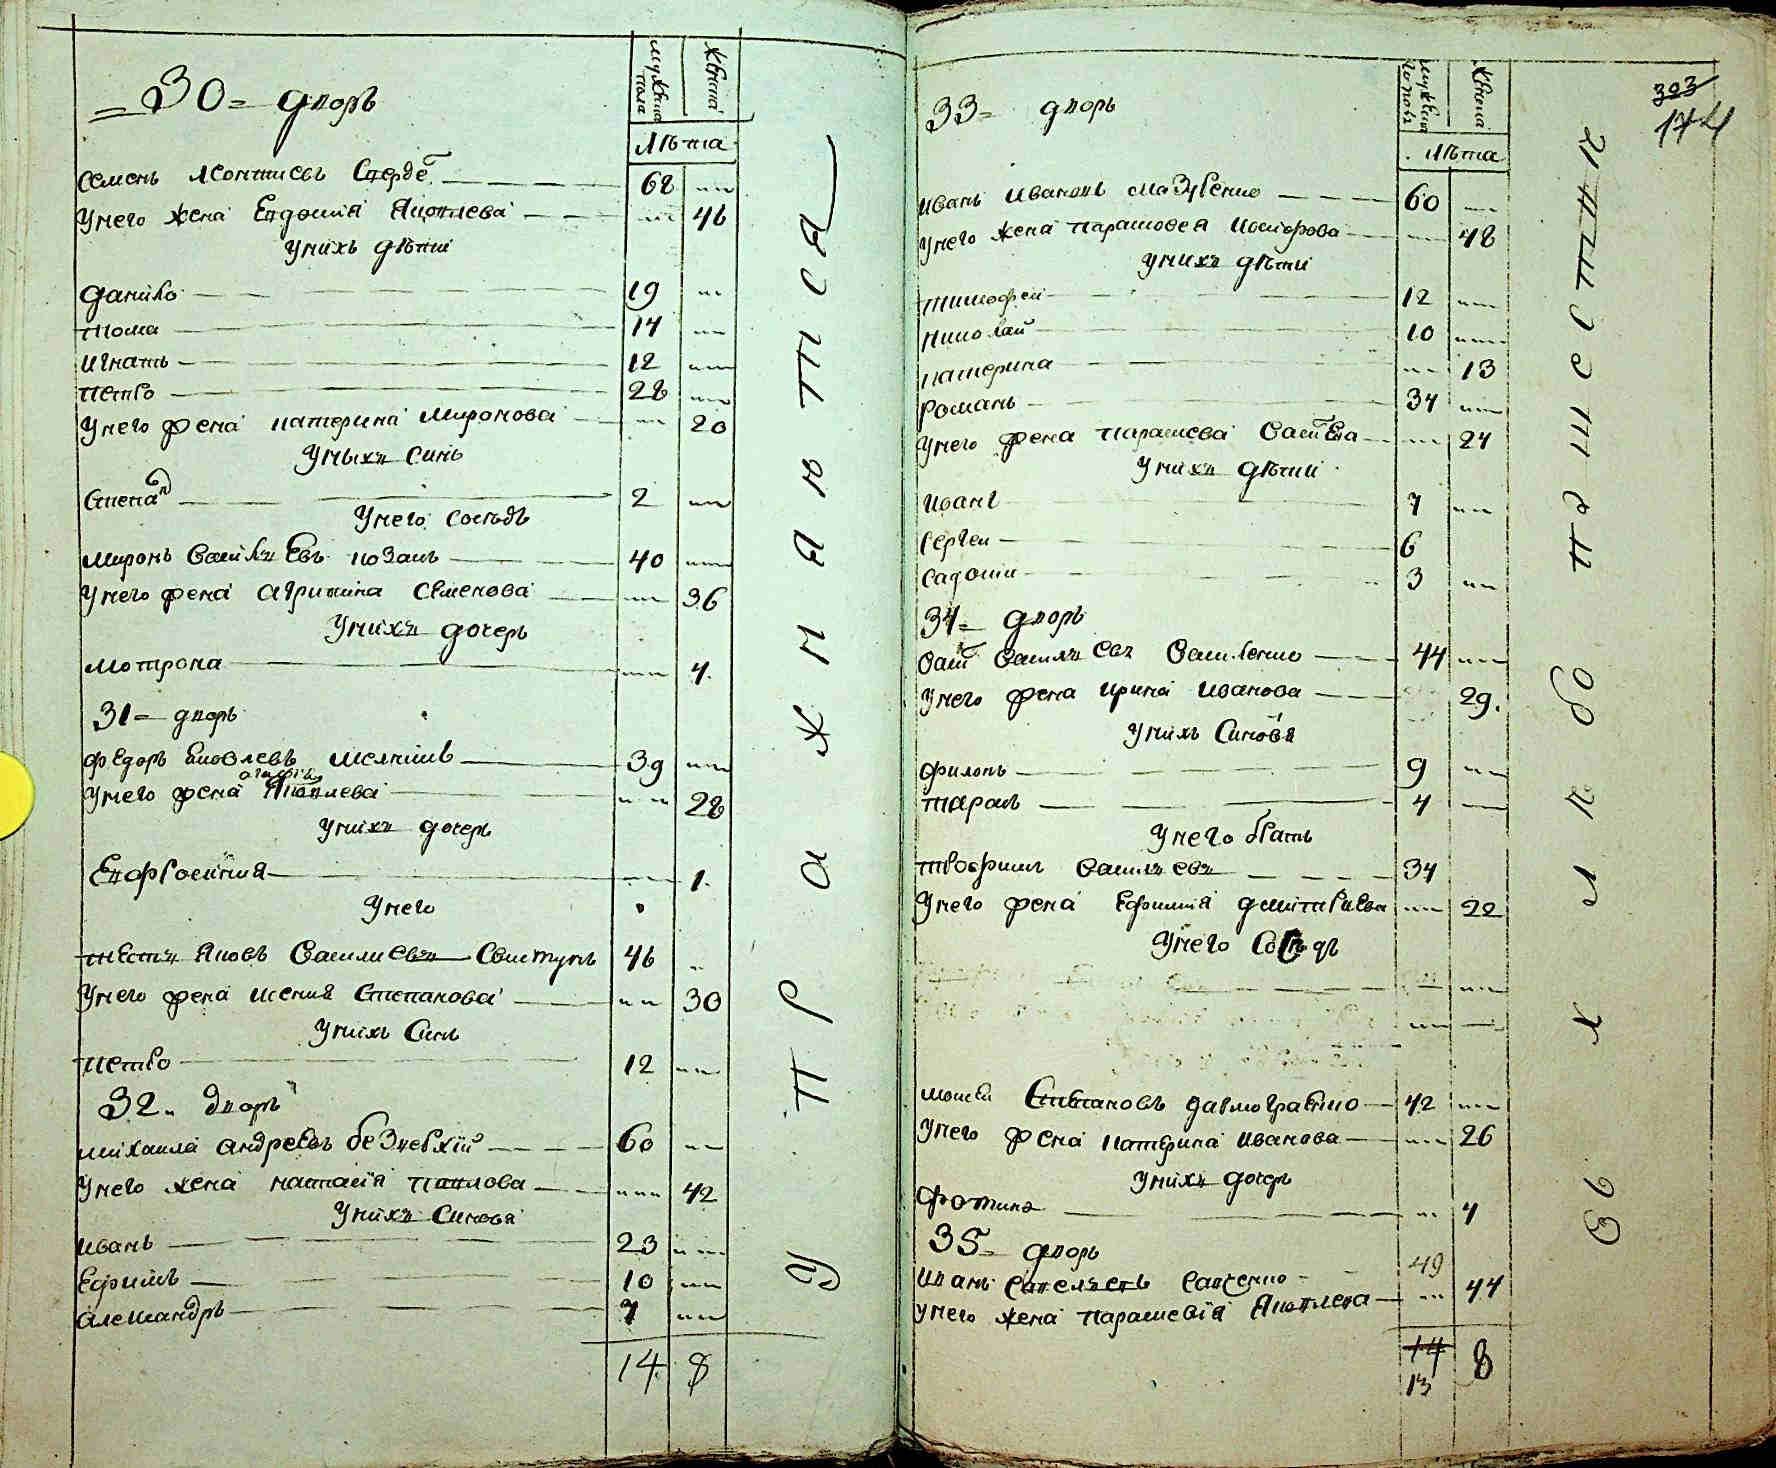 мужеска пола
женска
лѣта
=30= дворъ
Семенъ Леонтиевъ 68
у него жена Евдокия Яковлева 46
у нихъ дѣти
Данило 19
Тома 14
Игнатъ 12
Петро 28
у него жена Катерина Миронова 20
у ныхъ синъ
Степанъ 2
у него сосѣдъ
Миронъ Василъевъ Козакъ 40
у него жена Агрипина Семенова 36
у нихъ дочеръ
Мотрона 4
31= дворъ
Федоръ Яковлевъ 39
у него жена Агафія Яковлева 28
у нихъ дочеръ
Евфросиния 1
у него
тестъ Яковъ Василиевъ Свистунъ 46
у него жена Ксения Степанова 30
у нихъ синъ
Петро 12
32 дворъ
Михаила Андреевъ 60
у него жена Наталія Павлова 42
у нихъ синовя
Иванъ 23
Ефимъ 10
Александръ 7
14 8
у ПРАЖНЯЮТСЯ
303
174
мужеска пола
женска
лѣта
33= дворъ
Иванъ Ивановъ Мазуренко 60
у него жена Парасковея Никифорова 48
у нихъ дѣти
Тимофей 12
Николай 10
Катерина 13
Романъ 34
у него жена Параскева 24
у нихъ дѣти
Иванъ 7
Сергеи 6
3
34= дворъ
Василъевъ Василенко 44
у него жена Ирина Иванова 29
у нихъ синовя
Филонъ 9
Тарасъ 4
у него братъ
Трофимъ Василъевъ 34
у него жена Ефимия Дмитриева 22
у него сосѣдъ
Моисей Степановъ 42
у него жена Катерина Иванова 26
у нихъ дочеръ
Фотина 4
35= дворъ
Иванъ Савелъевъ Савченко 49
у него жена Парасковія Яковлева 44
14 8
13